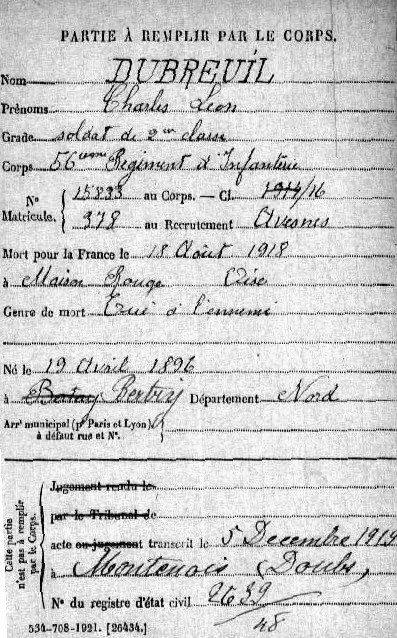 PARTIE À REMPLIR PAR LE CORPS.
Nom DUBREUIL
Prénoms Charles Léon
Grade soldat de 2me classe
Corps 56eme Régiment d'Infanterie
N° Matricule. 15833 au Corps. — Cl. 1914/16
378 au Recrutement Avesnes
Mort pour la France le 18 Août 1918
à Maison Rouge Oise
Genre de mort Tué à l'ennemi
Né le 19 Avril 1896
à Bertry Département Nord
Arrt municipal (pr Paris et Lyon),
à défaut rue et N°.
Cette partie n'est pas à remplir par le Corps.
Jugement rendu le
par le Tribunal de
acte ou jugement transcrit le 5 Decembre 1919
à Montenois (Doubs)
N° du registre d'état civil 2639/48
534-708-1921. [26434.]